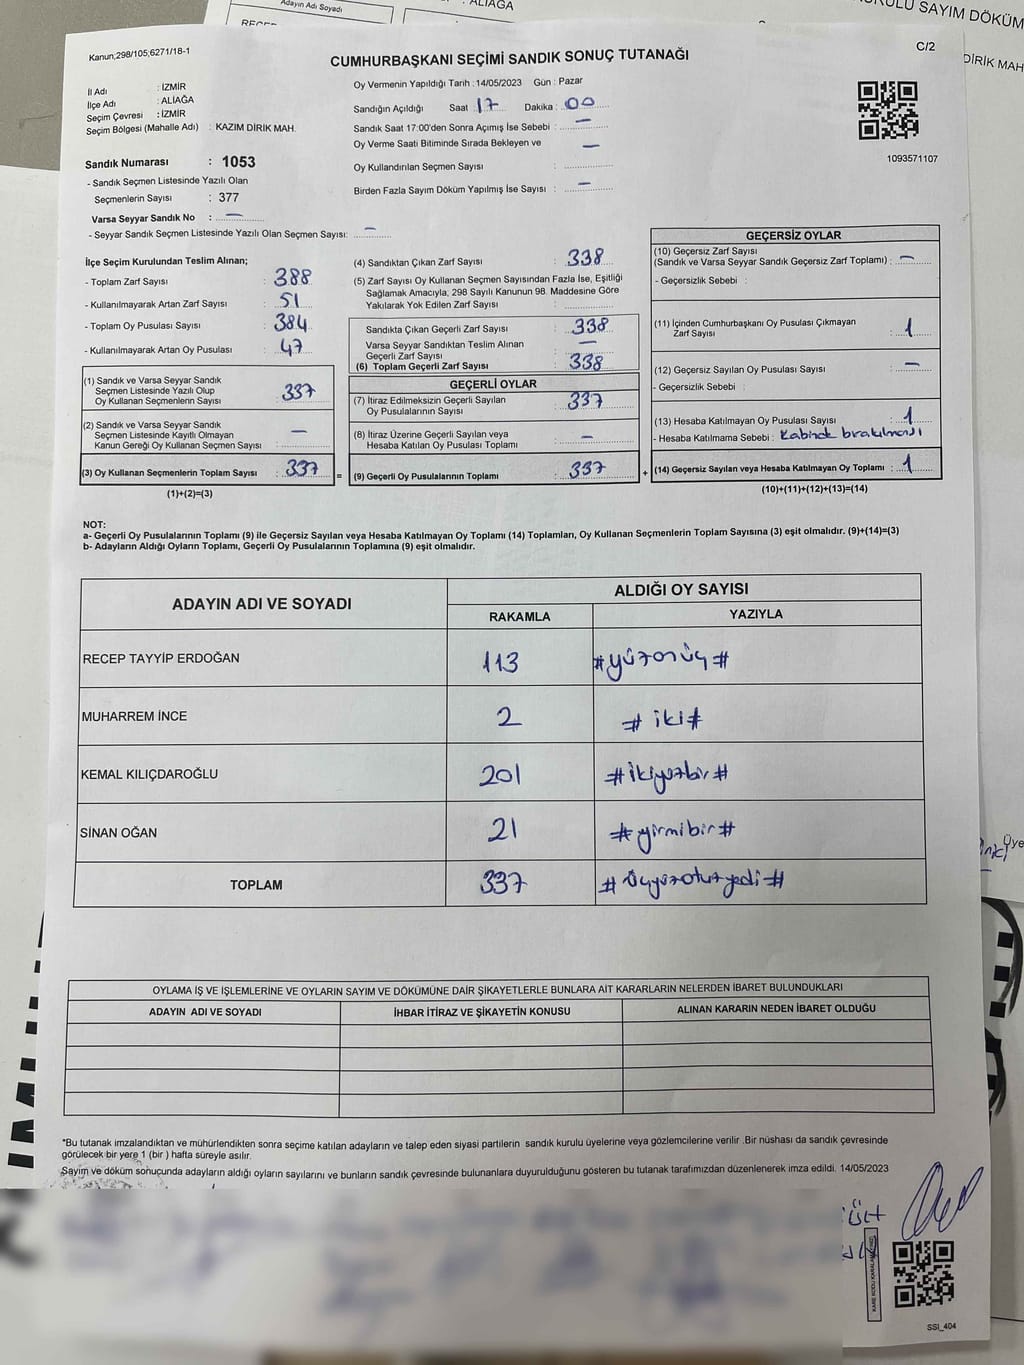 Adayın Adı Soyadı
: ALİAĞA
KURULU SAYIM DÖKÜM
DİRİK MAH
Kanun,298/105,6271/18-1
C/2
CUMHURBAŞKANI SEÇİMİ SANDIK SONUÇ TUTANAĞI
İl Adı : İZMİR
İlçe Adı : ALİAĞA
Seçim Çevresi : İZMİR
Seçim Bölgesi (Mahalle Adı) : KAZIM DİRİK MAH.
Oy Vermenin Yapıldığı Tarih : 14/05/2023 Gün : Pazar
Sandığın Açıldığı Saat : 17 Dakika : 00
Sandık Saat 17:00'den Sonra Açımış İse Sebebi : —
Oy Verme Saati Bitiminde Sırada Bekleyen ve —
Oy Kullandırılan Seçmen Sayısı :
Birden Fazla Sayım Döküm Yapılmış İse Sayısı : —
1093571107
Sandık Numarası : 1053
- Sandık Seçmen Listesinde Yazılı Olan
Seçmenlerin Sayısı : 377
Varsa Seyyar Sandık No : —
- Seyyar Sandık Seçmen Listesinde Yazılı Olan Seçmen Sayısı: —
İlçe Seçim Kurulundan Teslim Alınan;
- Toplam Zarf Sayısı : 388
- Kullanılmayarak Artan Zarf Sayısı : 51
- Toplam Oy Pusulası Sayısı : 384
- Kullanılmayarak Artan Oy Pusulası : 47
(1) Sandık ve Varsa Seyyar Sandık
Seçmen Listesinde Yazılı Olup
Oy Kullanan Seçmenlerin Sayısı : 337
(2) Sandık ve Varsa Seyyar Sandık
Seçmen Listesinde Kayıtlı Olmayan
Kanun Gereği Oy Kullanan Seçmen Sayısı : —
(3) Oy Kullanan Seçmenlerin Toplam Sayısı : 337 =
(1)+(2)=(3)
(4) Sandıktan Çıkan Zarf Sayısı : 338
(5) Zarf Sayısı Oy Kullanan Seçmen Sayısından Fazla İse, Eşitliği
Sağlamak Amacıyla, 298 Sayılı Kanunun 98. Maddesine Göre
Yakılarak Yok Edilen Zarf Sayısı :
Sandıkta Çıkan Geçerli Zarf Sayısı : 338
Varsa Seyyar Sandıktan Teslim Alınan
Geçerli Zarf Sayısı : —
(6) Toplam Geçerli Zarf Sayısı : 338
GEÇERLİ OYLAR
(7) İtiraz Edilmeksizin Geçerli Sayılan
Oy Pusulalarının Sayısı : 337
(8) İtiraz Üzerine Geçerli Sayılan veya
Hesaba Katılan Oy Pusulası Toplamı : —
(9) Geçerli Oy Pusulalarının Toplamı : 337 +
GEÇERSİZ OYLAR
(10) Geçersiz Zarf Sayısı
(Sandık ve Varsa Seyyar Sandık Geçersiz Zarf Toplamı) : —
- Geçersizlik Sebebi :
(11) İçinden Cumhurbaşkanı Oy Pusulası Çıkmayan
Zarf Sayısı : 1
(12) Geçersiz Sayılan Oy Pusulası Sayısı : —
- Geçersizlik Sebebi :
(13) Hesaba Katılmayan Oy Pusulası Sayısı : 1
- Hesaba Katılmama Sebebi : Kabinde bırakılması
(14) Geçersiz Sayılan veya Hesaba Katılmayan Oy Toplamı : 1
(10)+(11)+(12)+(13)=(14)
NOT:
a- Geçerli Oy Pusulalarının Toplamı (9) ile Geçersiz Sayılan veya Hesaba Katılmayan Oy Toplamı (14) Toplamları, Oy Kullanan Seçmenlerin Toplam Sayısına (3) eşit olmalıdır. (9)+(14)=(3)
b- Adayların Aldığı Oyların Toplamı, Geçerli Oy Pusulalarının Toplamına (9) eşit olmalıdır.
ADAYIN ADI VE SOYADI
ALDIĞI OY SAYISI
RAKAMLA YAZIYLA
RECEP TAYYİP ERDOĞAN 113 #yüzonüç#
MUHARREM İNCE 2 #iki#
KEMAL KILIÇDAROĞLU 201 #ikiyüzbir#
SİNAN OĞAN 21 #yirmibir#
TOPLAM 337 #üçyüzotuzyedi#
OYLAMA İŞ VE İŞLEMLERİNE VE OYLARIN SAYIM VE DÖKÜMÜNE DAİR ŞİKAYETLERLE BUNLARA AİT KARARLARIN NELERDEN İBARET BULUNDUKLARI
ADAYIN ADI VE SOYADI İHBAR İTİRAZ VE ŞİKAYETİN KONUSU ALINAN KARARIN NEDEN İBARET OLDUĞU
*Bu tutanak imzalandıktan ve mühürlendikten sonra seçime katılan adayların ve talep eden siyasi partilerin sandık kurulu üyelerine veya gözlemcilerine verilir .Bir nüshası da sandık çevresinde
görülecek bir yere 1 (bir ) hafta süreyle asılır.
Sayım ve döküm sonucunda adayların aldığı oyların sayılarını ve bunların sandık çevresinde bulunanlara duyurulduğunu gösteren bu tutanak tarafımızdan düzenlenerek imza edildi. 14/05/2023
SSI_404